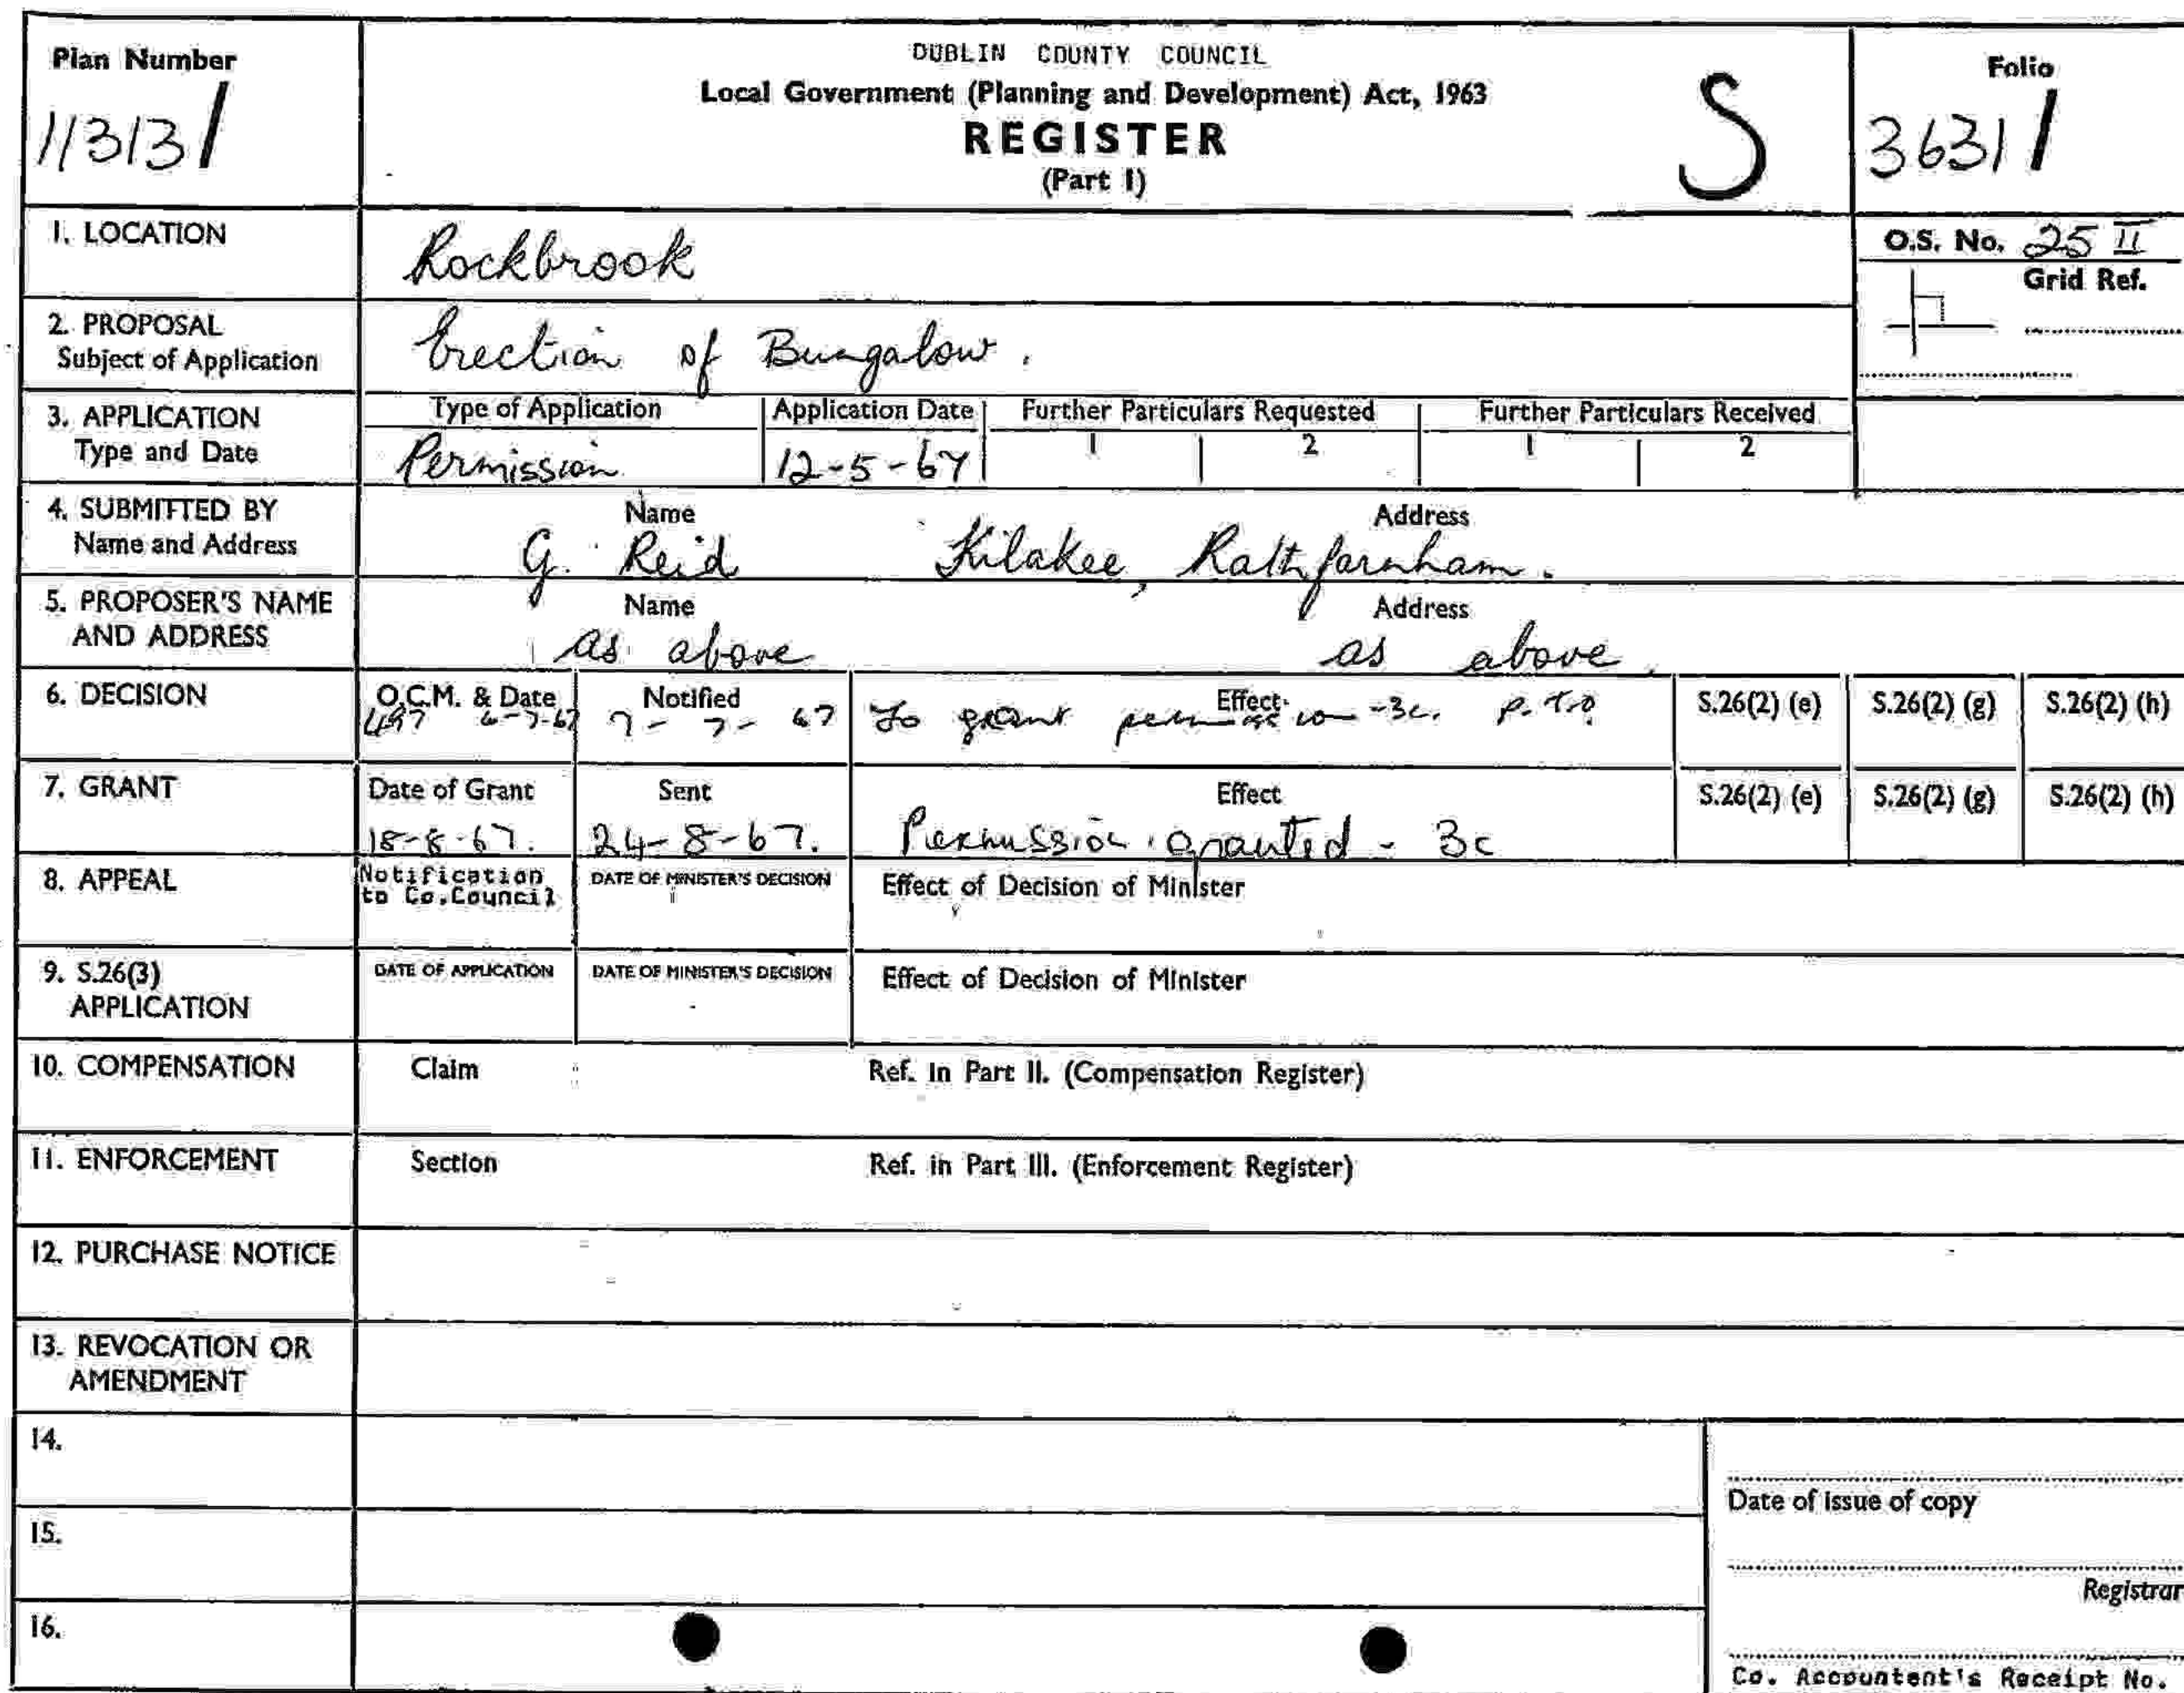 DUBLIN COUNTY COUNCIL
Plan Number
11313/
Local Government (Planning and Development) Act, 1963
REGISTER
(Part I)
S
Folio
3631/
1. LOCATION
Rockbrook
O.S. No. 25 II
Grid Ref.
2. PROPOSAL
Subject of Application
Erection of Bungalow.
3. APPLICATION
Type and Date
Type of Application
Permission
Application Date
12-5-67
Further Particulars Requested
1 2
Further Particulars Received
1 2
4. SUBMITTED BY
Name and Address
Name
G. Reid
Address
Kilakee, Rathfarnham.
5. PROPOSER'S NAME
AND ADDRESS
Name
as above
Address
as above
6. DECISION
O.C.M. & Date
497 6-7-67
Notified
7-7-67
Effect
To grant permission -3c. P.T.O.
S.26(2) (e) S.26(2) (g) S.26(2) (h)
7. GRANT
Date of Grant
18-8-67.
Sent
24-8-67.
Effect
Permission granted - 3c
S.26(2) (e) S.26(2) (g) S.26(2) (h)
8. APPEAL
Notification
to Co.Council
DATE OF MINISTER'S DECISION
Effect of Decision of Minister
9. S.26(3)
APPLICATION
DATE OF APPLICATION
DATE OF MINISTER'S DECISION
Effect of Decision of Minister
10. COMPENSATION
Claim
Ref. in Part II. (Compensation Register)
11. ENFORCEMENT
Section
Ref. in Part III. (Enforcement Register)
12. PURCHASE NOTICE
13. REVOCATION OR
AMENDMENT
14.
15.
16.
Date of issue of copy
Registrar
Co. Accountant's Receipt No.